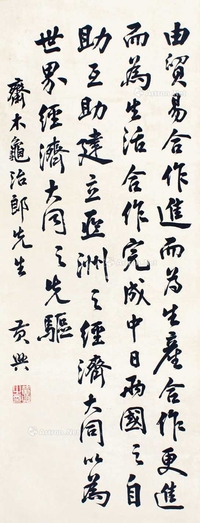 由貿易合作進而為生產合作更進
而為生活合作完成中日兩國之自
助互助建立亞洲之經濟大同以為
世界經濟大同之先驅
齋木龜治郎先生
黃興